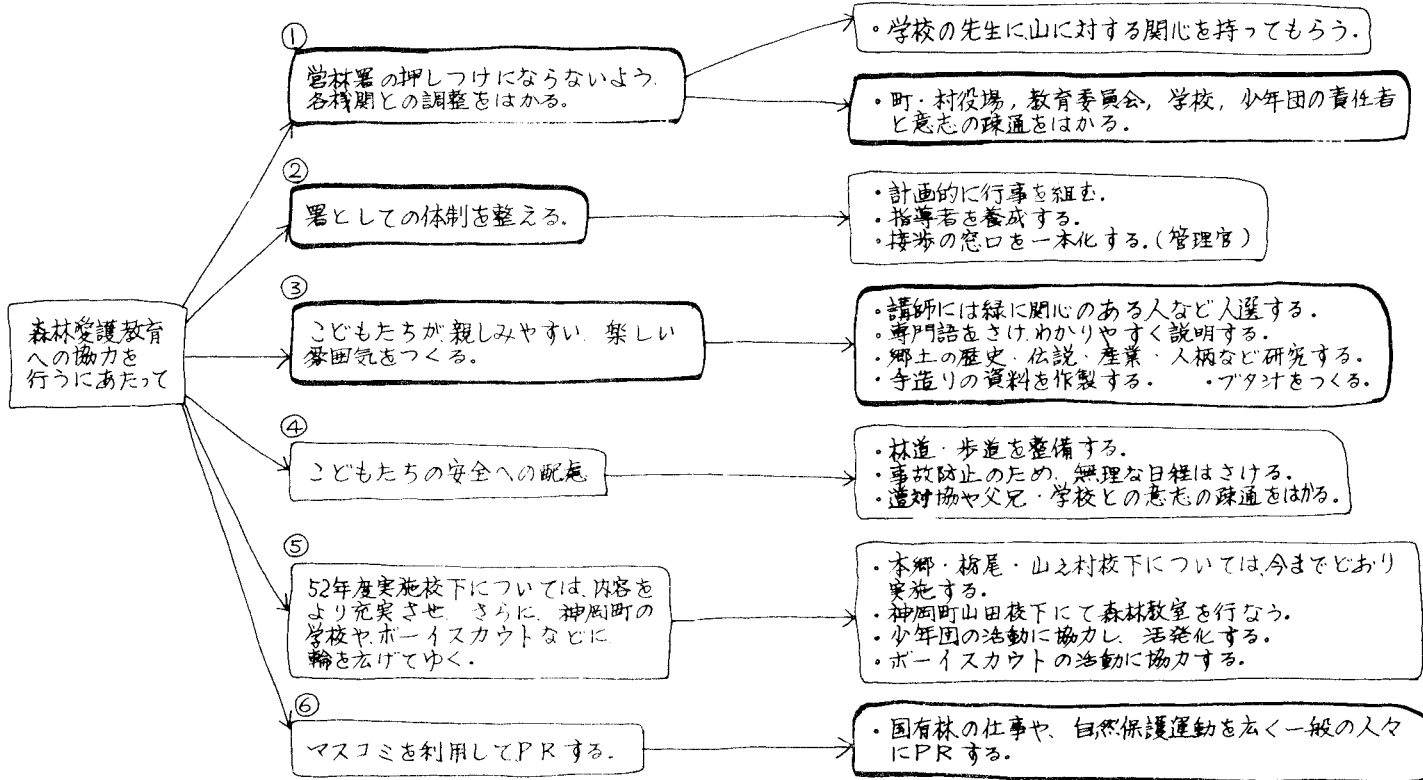 森林愛護教育
への協力を
行うにあたって
①
営林署の押しつけにならないよう、
各機関との調整をはかる。
・学校の先生に山に対する関心を持ってもらう。
・町・村役場，教育委員会，学校，少年団の責任者
と意志の疎通をはかる。
②
署としての体制を整える。
・計画的に行事を組む。
・指導者を養成する。
・接渉の窓口を一本化する。(管理官)
③
こどもたちが、親しみやすい、楽しい
雰囲気をつくる。
・講師には緑に関心のある人など人選する。
・専門語をさけ、わかりやすく説明する。
・郷土の歴史・伝説・産業・人柄など研究する。
・手造りの資料を作製する。 ・ブタ汁をつくる。
④
こどもたちの安全への配慮
・林道・歩道を整備する。
・事故防止のため、無理な日程はさける。
・遭対協や父兄・学校との意志の疎通をはかる。
⑤
52年度実施校下については、内容を
より充実させ、さらに、神岡町の
学校や、ボーイスカウトなどに、
輪を広げてゆく。
・本郷・栃尾・山之村校下については、今までどおり
実施する。
・神岡町山田校下にて森林教室を行なう。
・少年団の活動に協力し、活発化する。
・ボーイスカウトの活動に協力する。
⑥
マスコミを利用してPRする。
・国有林の仕事や、自然保護運動を広く一般の人々
にPRする。